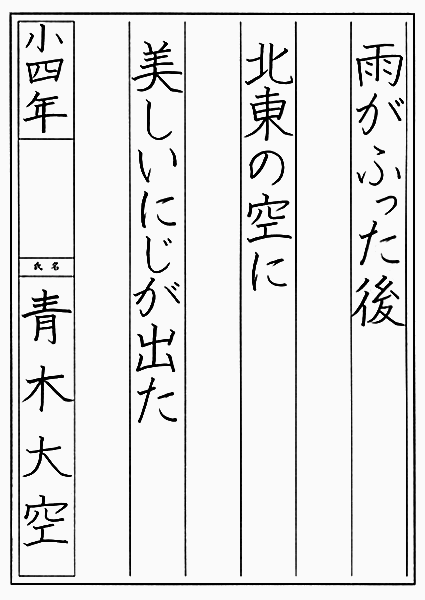 雨がふった後
北東の空に
美しいにじが出た
小四年
氏名
青木大空